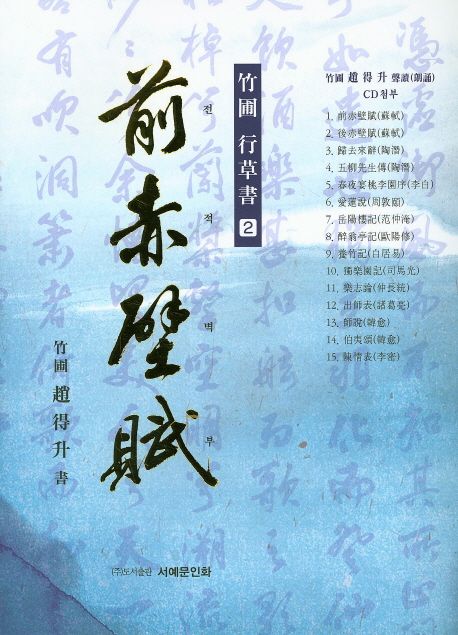 竹圃 行草書 2
前赤壁賦
전적벽부
竹圃 趙得升 書
竹圃 趙得升 聲讀(朗誦)
CD첨부
1. 前赤壁賦(蘇軾)
2. 後赤壁賦(蘇軾)
3. 歸去來辭(陶潛)
4. 五柳先生傳(陶潛)
5. 春夜宴桃李園序(李白)
6. 愛蓮說(周敦頤)
7. 岳陽樓記(范仲淹)
8. 醉翁亭記(歐陽修)
9. 養竹記(白居易)
10. 獨樂園記(司馬光)
11. 樂志論(仲長統)
12. 出師表(諸葛亮)
13. 師說(韓愈)
14. 伯夷頌(韓愈)
15. 陳情表(李密)
(주)도서출판 서예문인화